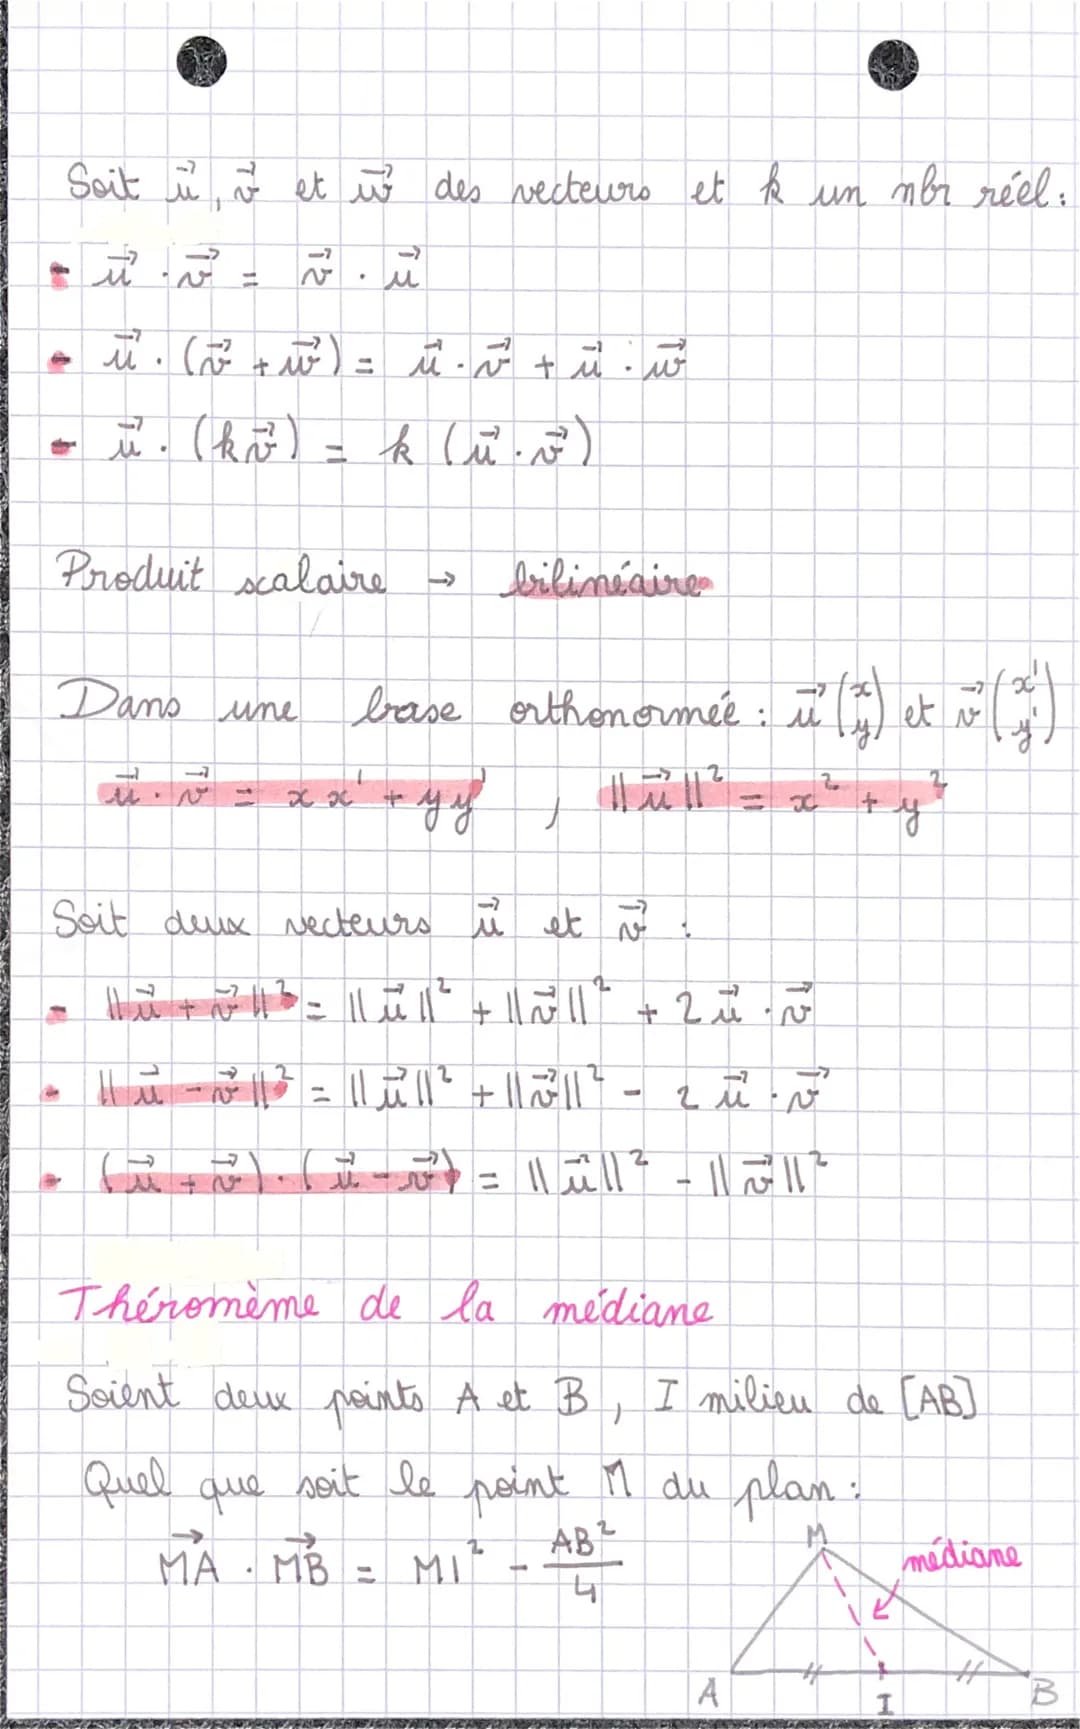 Soit u⃗, v⃗ et w⃗ des vecteurs et k un nbr réel :
- u⃗ · v⃗ = v⃗ · u⃗
- u⃗ · (v⃗ + w⃗) = u⃗ · v⃗ + u⃗ · w⃗
- u⃗ · (kv⃗) = k (u⃗ · v⃗)
Produit scalaire → bilinéaire
Dans une base orthonormée : u⃗ (x y) et v⃗ (x' y')
u⃗ · v⃗ = xx' + yy' , ||u⃗||² = x² + y²
Soit deux vecteurs u⃗ et v⃗ :
- ||u⃗ + v⃗||² = ||u⃗||² + ||v⃗||² + 2u⃗ · v⃗
- ||u⃗ - v⃗||² = ||u⃗||² + ||v⃗||² - 2u⃗ · v⃗
- (u⃗ + v⃗) · (u⃗ - v⃗) = ||u⃗||² - ||v⃗||²
Théromème de la médiane
Soient deux points A et B, I milieu de [AB]
Quel que soit le point M du plan :
MA⃗ · MB⃗ = MI² - AB²/4
M
médiane
A
I
B